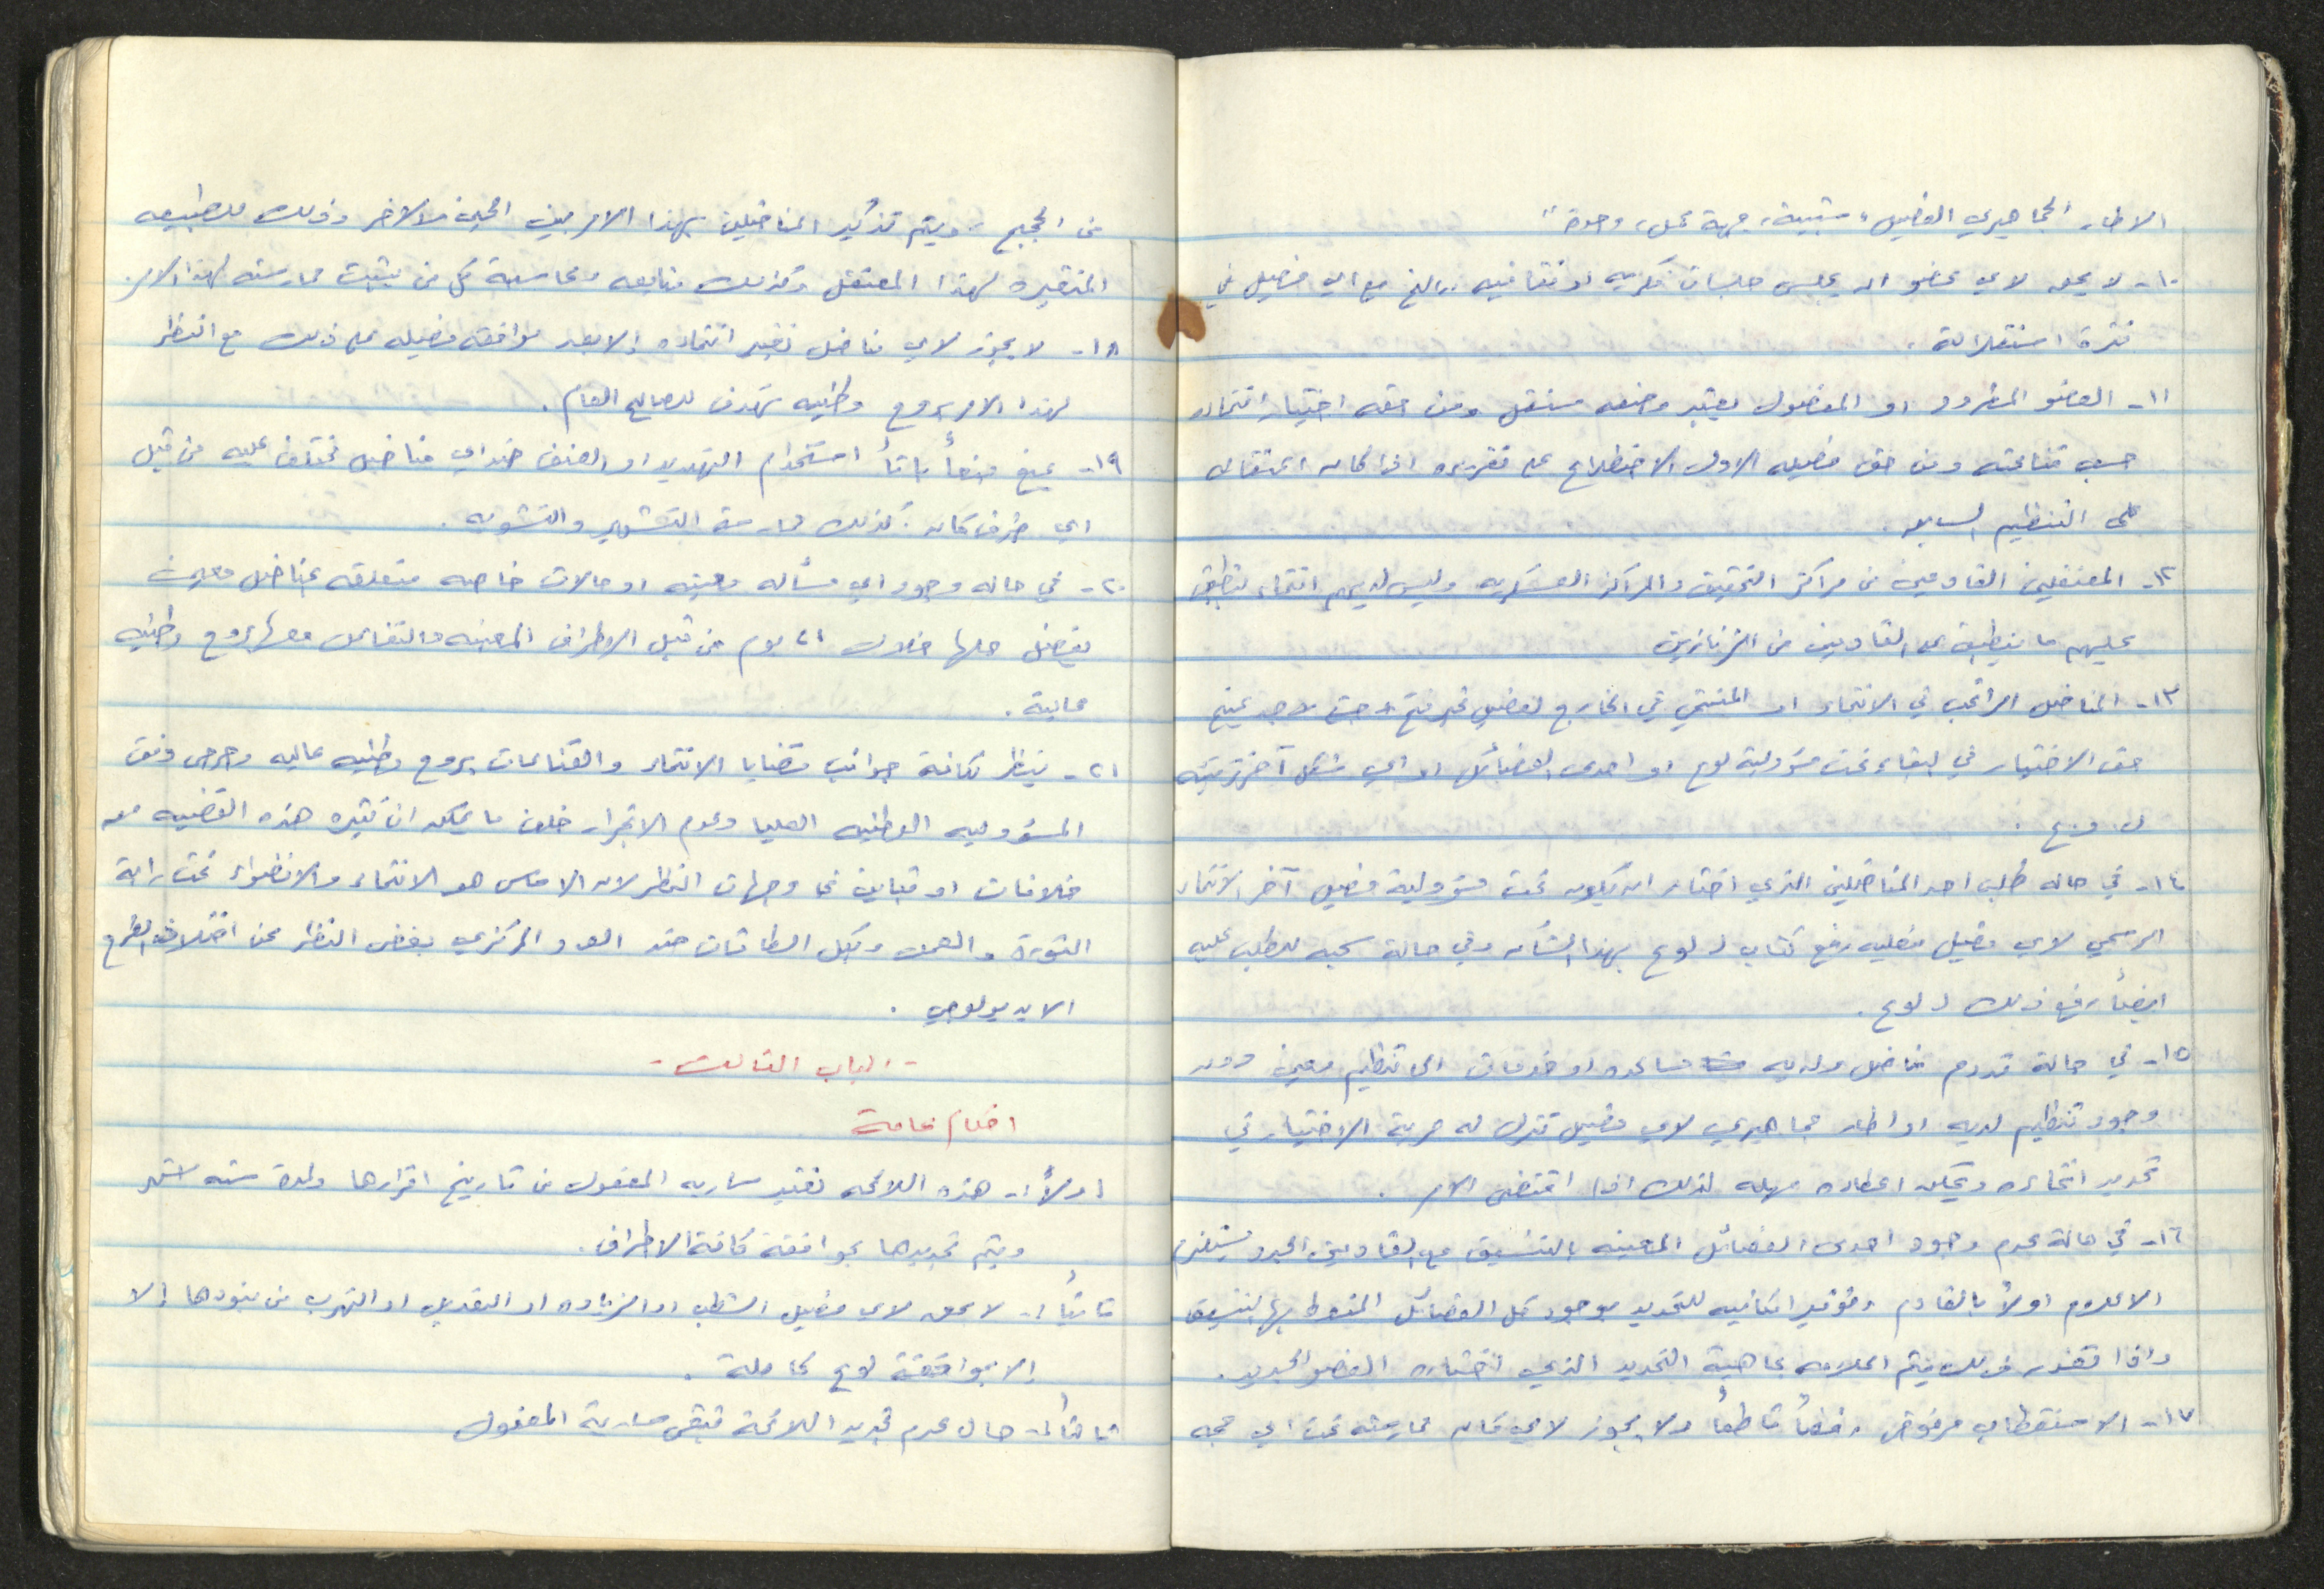 الاطار الجماهيري الفصيل "شبيبة، جبهة عمل، وحدة"
١٠- لا يحق لاي عضو ان يجلس جلسات فكريه او ثقافيه .. الخ مع اي فصيل في
فترة استقلاله .
١١- العضو المطرود او المفصول يعتبر وضعه مستقل ومن حقه اختيار انتماءه
حسب قناعته ومن حق فصيله الاول الاضطلاع على تقريره اذا كان اعتقاله
على التنظيم السابق .
١٢- المعتقلين القادمين من مراكز التحقيق والمراكز العسكريه وليس لديهم انتماء ينطبق
عليهم ما ينطبق على القادمين من الزنازين
١٣- المناضل الراغب في الانتماء او المنتمي في الخارج لفصيل غير فتح يمنح
حق الاختيار في البقاء تحت مسؤولية لوع او احدى الفصائل او اي شكل آخر ترتئيه
ل. و. ع .
١٤- في حاله طلب احد المناضلين الذي اختار ان يكون تحت مسؤولية فصيل آخر الانتماء
الرسمي لاي فصيل فعليه رفع كتاب لـ لوع بهذا الشأن وفي حالة سحبه للطلب عليه
ايضاً رفع ذلك لـ لوع .
١٥- في حالة قدوم مناضل ولديه مساعده او خدمات الى تنظيم معين دون
وجود تنظيم لديه او اطار جماهيري لاي فصيل تترك له حرية الاختيار في
تحديد انتماءه ويمكن اعطاءه مهله لذلك اذا اقتضى الامر .
١٦- في حالة عدم وجود احدى الفصائل المعينه بالتنسيق مع القادمين الجدد يستلزم
الاعلام اولاً بالقادم وتوفير امكانيه للتحديد بوجود كل الفصائل المنوط بها التنسيق
واذا تعذر ذلك فيتم اعلامه بماهية التحديد الذي اختاره العضو الجديد .
١٧- الاستقطاب مرفوض رفضاً قاطعاً ولا يجوز لاي كان ممارسته تحت اي حجه
من الحجج - ويتم تذكير المناضلين بهذا الامر بين الحين والاخر وذلك للطبيعه
المتغيره لهذا المعتقل وكذلك متابعه ومحاسبة كل من يثبت ممارسته لهذا الامر .
١٨- لا يجوز لاي مناضل تغيير انتماءه إلا بعد موافقة فصيله على ذلك مع النظر
لهذا الامر بروح وطنيه تهدف للصالح العام .
١٩- يمنع منعاً باتاً استخدام التهديد او العنف ضد اي مناضل مختلف عليه من قبل
اي طرف كان . كذلك ممارسة التشهير والتشويه .
٢٠- في حاله وجود اي مسأله معينه او حالات خاصه متعلقه بمناضل معين
يفضل حلها خلال ٢١ يوم من قبل الاطراف المعينه والتفاعل معها بروح وطنيه
عالية .
٢١- ينظر لكافة جوانب قضايا الانتماء والقناعات بروح وطنيه عاليه وحرص وفق
المسؤوليه الوطنيه العليا وعدم الانجرار خلف ما يمكن ان تثيره هذه القضيه من
خلافات او تباين في وجهات النظر لان الاساس هو الانتماء والانضواء تحت راية
الثورة والعمل وبكل الطاقات ضد العدو المركزي بغض النظر عن اختلاف الطرح
الايديولوجي .
- الباب الثالث -
احكام عامة
اولاً :- هذه اللائحه تعتبر ساريه المفعول من تاريخ اقرارها ولمدة سته اشهر
ويتم تجديدها بموافقة كافة الاطراف .
ثانياً :- لا يحق لاي فصيل الشطب او الزياده او التعديل او التهرب من بنودها إلا
إلا بموافقة لوع كاملة .
ثالثاً :- حال عدم تجديد اللائحة تبقى سارية المفعول